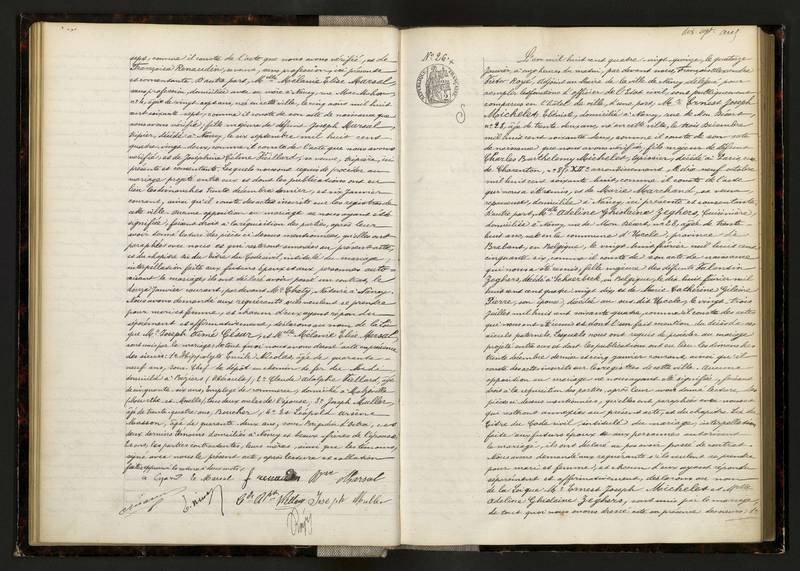 sept, comme il conste de l'acte que nous avons vérifié, et de
Françoise Renaudin, veuve, sans profession, ici présente
et consentante. D'autre part, Mlle Mélanie Elise Marsal
sans profession, domiciliée avec sa mère à Nancy, rue
âgée de vingt sept ans, née en cette ville, le vingt août mil huit
cent soixante sept, comme il conste de son acte de naissance que
nous avons vérifié, fille majeure de défunt Joseph Marsal
décédé à Nancy, le six septembre mil huit cent
quatre vingt deux, comme il conste de l'acte que nous avons
vérifié, et de Joséphine Céline Viellard, sa veuve, ici
présente et consentante. Lesquels nous ont requis de procéder au
mariage projeté entre eux et dont les publications ont eu
lieu les dimanches trente décembre dernier, et six Janvier
courant, ainsi qu'il conste des actes inscrits sur les registres de
cette ville. Aucune opposition au mariage ne nous ayant été
signifiée, faisant droit à la réquisition des parties, après leur
avoir donné lecture des pièces ci-dessus mentionnées, qu'elles ont
paraphées avec nous et qui resteront annexées au présent acte,
et du chapitre six du titre du Code civil, intitulé du mariage,
interpellation faite aux futurs époux et aux personnes auto-
risant le mariage, ils ont déclaré avoir passé un contrat, le
Janvier courant, par devant Me Notaire à Nancy
Nous avons demandé aux requérants s'ils veulent se prendre
pour mari et femme, et chacun d'eux ayant répondu
séparément et affirmativement, déclarons au nom de la Loi
que Mr Joseph et Mlle Mélanie Elise Marsal
sont unis par le mariage. De tout quoi nous avons dressé acte en présence
des sieurs: 1° Hippolyte Emile Nicolas, âgé de quarante-
neuf ans, Sous Chef de dépôt au chemin de fer du Midi
domicilié à Béziers (Hérault), 2° Claude Adolphe Viellard, âgé
de cinquante-six ans, Employé de commerce, domicilié à
(Meurthe et Moselle), tous deux oncles de l'épouse, 3° Joseph Muller
âgé de trente quatre ans, Boucher, 4° et Léopold Arsène
Masson, âgé de quarante deux ans, Brigadier d'octroi, ces
deux derniers témoins domiciliés à Nancy et beaux frères de l'épouse
Et ont, les parties contractantes, leurs mères, ainsi que les témoins,
signé avec nous le présent acte, après lecture et collation
E. Marsal f renaudin Vve Marsal
E. Nicolas Joseph Muller
N° 26.
L'an mil huit cent quatre-vingt-quinze, le quatorze
Janvier, à onze heures du matin, par devant nous, François
Victor Royé, Adjoint au Maire de la ville de Nancy, délégué pour
remplir les fonctions d'officier de l'Etat civil, sont publiquement
comparus en l'hôtel de ville, d'une part, Mr Ernest Joseph
Michelet, Ebéniste, domicilié à Nancy, rue de Mon Désert
n° 28, âgé de trente deux ans, né en cette ville, le trois décembre
mil huit cent soixante deux, comme il conste de son acte
de naissance que nous avons vérifié, fils majeur de défunt
Charles Barthélemy Michelet, Tapissier, décédé à Paris, rue
de Charenton, n° XII arrondissement, le dix neuf octobre
mil huit cent soixante comme il conste de l'acte
qui nous a été remis, et de Marie Marchand, sa veuve
domiciliée à Nancy, ici présente et consentante.
D'autre part, Mlle Adeline Ghislaine Zeghers, Cuisinière,
domiciliée à Nancy, rue de Mon Désert, n° 28, âgée de trente-
huit ans, née en la commune d'Uccle, province de
Brabant, en Belgique, le vingt huit février mil huit cent
cinquante six, comme il conste de son acte de naissance
qui nous a été remis, fille majeure des défunts
Zeghers, décédé à Schaerbeek, en Belgique, le dix huit février mil
huit cent quatre vingt dix, et de Marie Catherine Ghilaine
Pierre, son épouse, décédée au susdit Uccle, le vingt trois
Juillet mil huit cent soixante quatre, comme il conste des actes
qui nous ont été remis et dont l'un fait mention du décès des
aïeuls paternels. Lesquels nous ont requis de procéder au mariage
projeté entre eux et dont les publications ont eu lieu les dimanches
trente décembre dernier et six janvier courant, ainsi qu'il
conste des actes inscrits sur les registres de cette ville. Aucune
opposition au mariage ne nous ayant été signifiée, faisant
droit à la réquisition des parties, après leur avoir donné lecture des
pièces ci-dessus mentionnées, qu'elles ont paraphées avec nous et
qui resteront annexées au présent acte, et du chapitre six du
titre du Code civil, intitulé du mariage, interpellation
faite aux futurs époux, et aux personnes autorisant
le mariage, ils ont déclaré ne pas avoir passé de contrat.
Nous avons demandé aux requérants s'ils veulent se prendre
pour mari et femme, et chacun d'eux ayant répondu
séparément et affirmativement, déclarons au nom
de la Loi que Mr Ernest Joseph Michelet et Mlle
Adeline Ghislaine Zeghers, sont unis par le mariage.
De tout quoi nous avons dressé acte en présence des sieurs: 1°